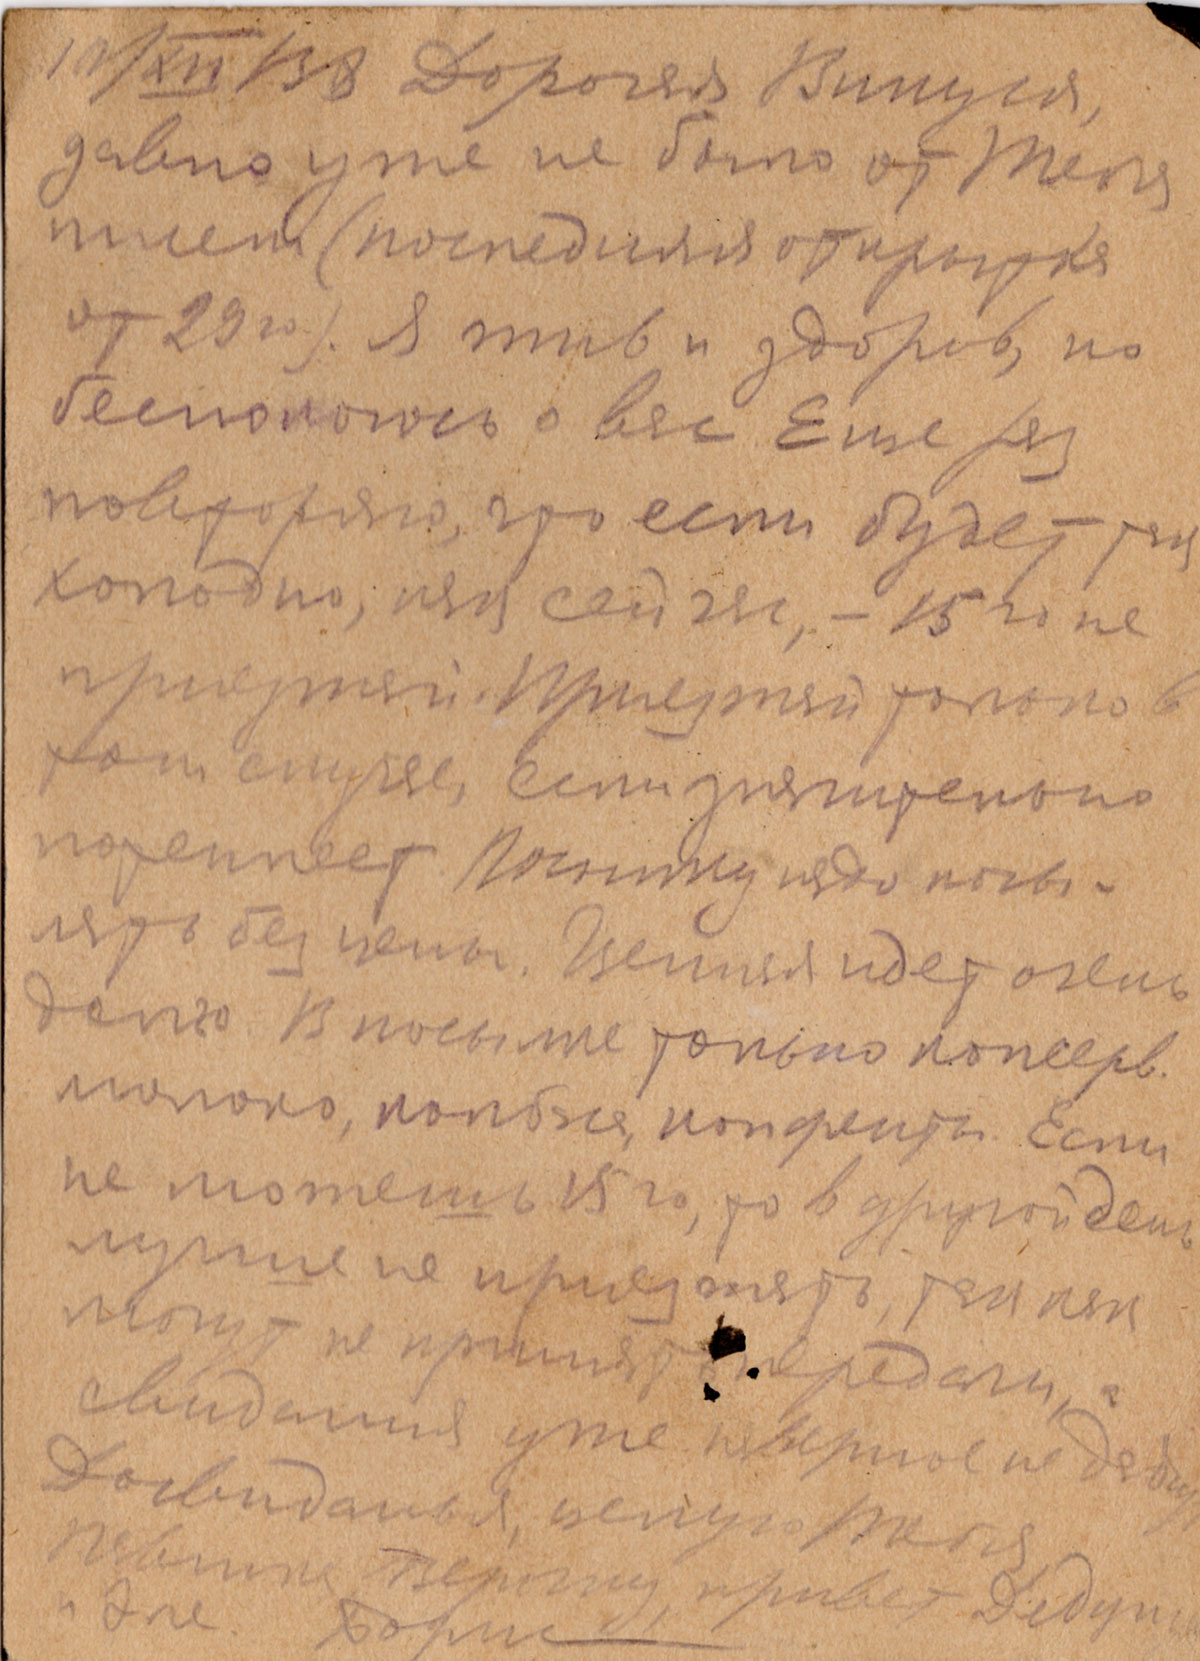 10/XII 138 Дорогая Винуся,
давно уже не было от Тебя
писем (последняя открытка
от 29го). Я жив и здоров, но
беспокоюсь о вас Еще раз
повторяю, что если будет так
холодно, как сейчас, – 15го не
приезжай. Приезжай только в
том случае, если значительно
потеплеет. Посылку надо посы-
лать без цены. Ценная идет очень
долго. В посылке только консерв.
молоко, колбаса, конфекты. Если
не можешь 15го, то в другой день
лучше не приезжать, так как
могут не принять передачи, а
свидания уже наверное не дадут
Досвиданья, целую Тебя,
Верочку, привет Дедуш
и Эле. Борис